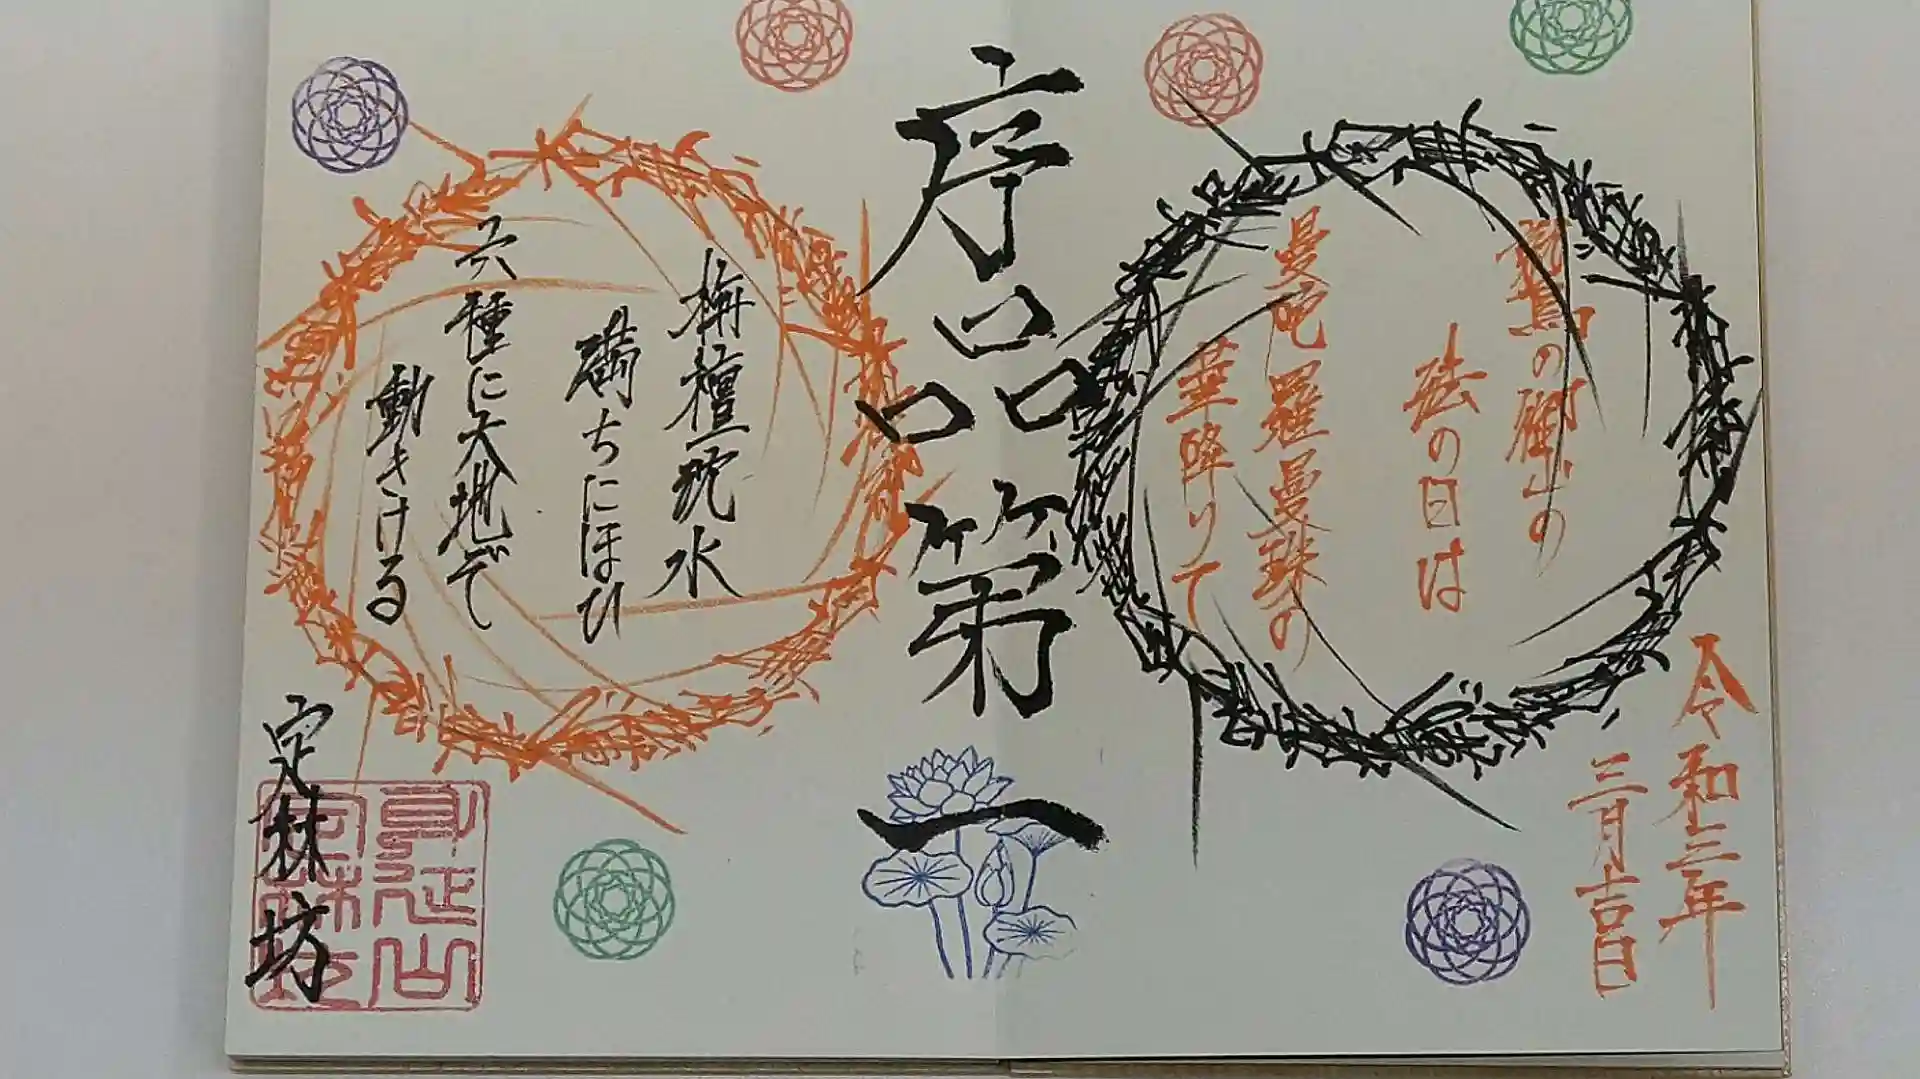 令和三年
三月吉日
鷲の御山の
法の日は
曼陀羅曼珠の
華降りて
序品第一
栴檀沈水
満ちにほひ
六種に大地で
動きける
定林坊
身延山
定林坊